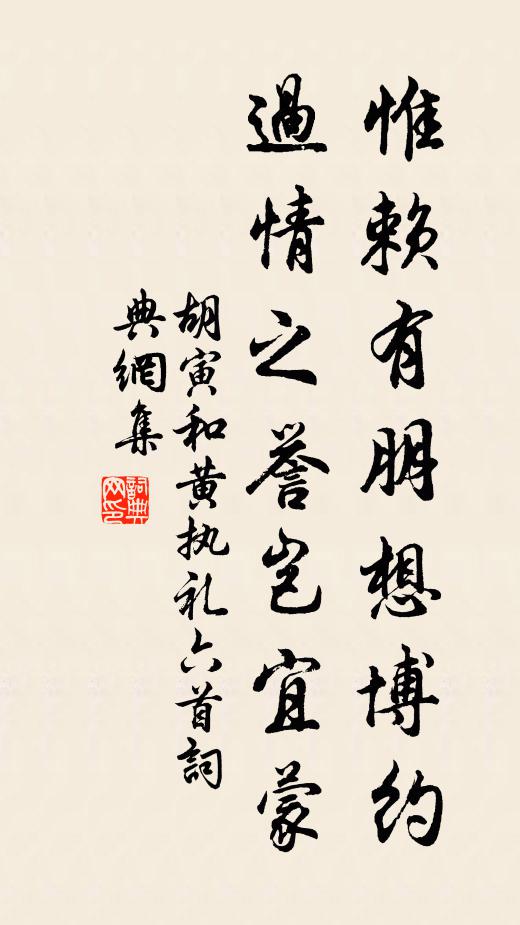 惟赖有朋想博约
過情之誉岂宜蒙
胡寅和黄执礼六首詞
典網集
詞典网印